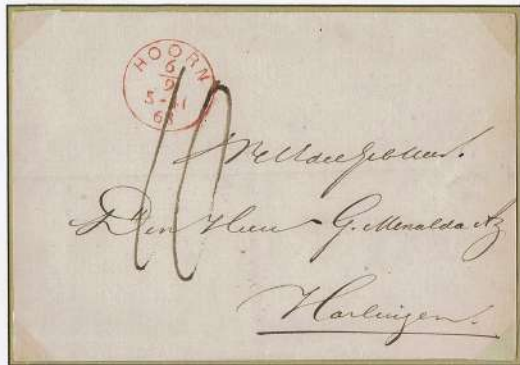 HOORN
6
9
5-11
63
10
WelEdeleGeb Heer.
Den Heer G. Menalda Az
Harlingen.